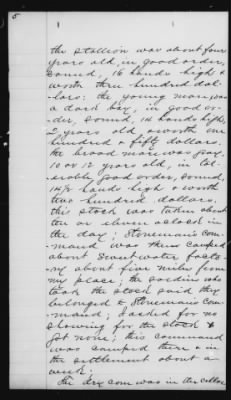 5
the stallion was about four
years old, in good order,
sound, 16 hands high &
worth three hundred dol-
lars; the young mare was
a dark bay, in good or-
der, sound, 14 hands high,
2 years old, & worth one
hundred & fifty dollars.
The brood mare was gray,
10 or 12 years old, in tol-
erably good order, sound,
14½ hands high & worth
two hundred dollars.
this stock was taken about
ten or eleven oclock in
the day; Stoneman's com-
mand was then camped
about Sweetwater facto-
ry about five miles from
my place; the soldiers who
took the stock said they
belonged to Stoneman's com-
mand; I asked for no
showing for the stock &
got none; this command
was camped there & in
the settlement about a
week.
The dry corn was in the